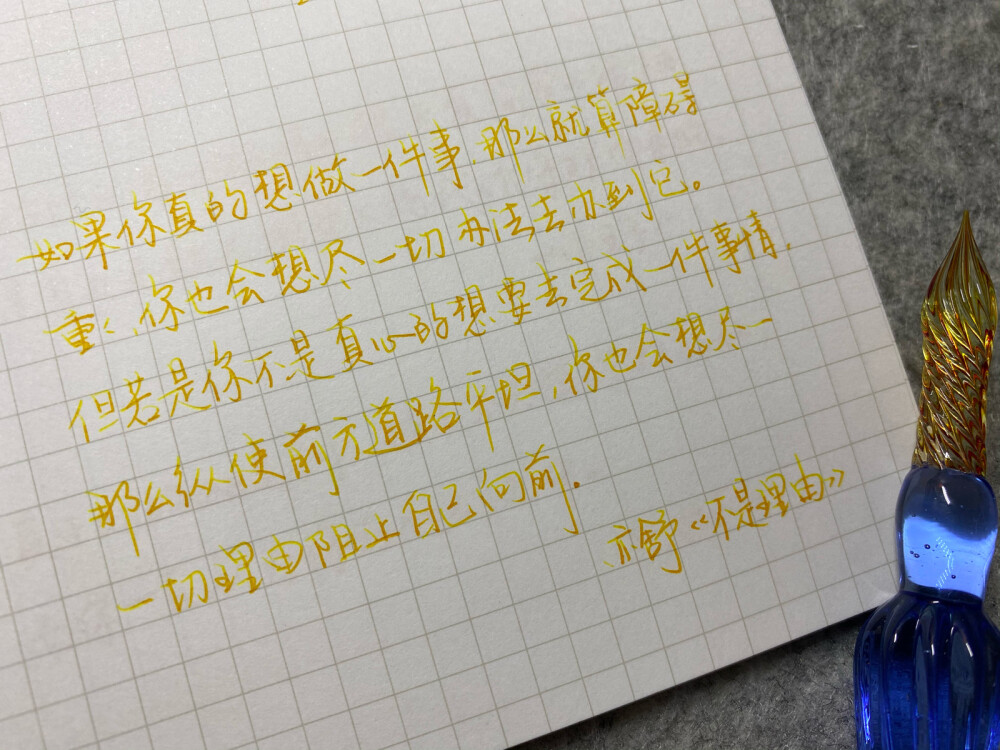 如果你真的想做一件事，那么就算障碍
重重，你也会想尽一切办法去办到它。
但若是你不是真心的想要去完成一件事情，
那么纵使前方道路平坦，你也会想尽一
一切理由阻止自己向前。
亦舒《不是理由》